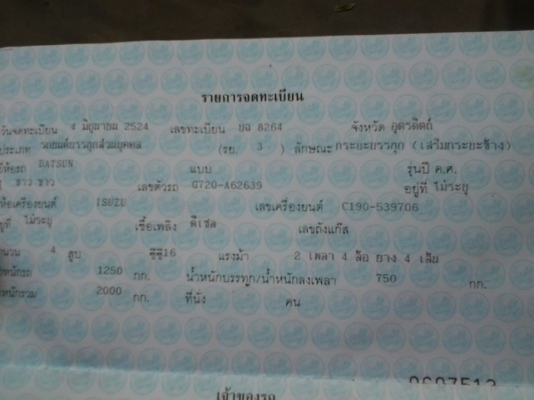 รายการจดทะเบียน
วันจดทะเบียน 4 มิถุนายน 2524 เลขทะเบียน บฉ 8264 จังหวัด อุตรดิตถ์
ประเภท รถยนต์บรรทุกส่วนบุคคล (รย. 3 ) ลักษณะ กระบะบรรทุก (เสริมกระบะข้าง)
ยี่ห้อรถ DATSUN แบบ รุ่นปี ค.ศ.
ขาว ขาว เลขตัวรถ G720-A62639 อยู่ที่ ไม่ระบุ
ห้อเครื่องยนต์ ISUZU เลขเครื่องยนต์ C190-539706
ยู่ที่ ไม่ระบุ เชื้อเพลิง ดีเซล เลขถังแก๊ส
จำนวน 4 สูบ ซีซี แรงม้า 2 เพลา 4 ล้อ ยาง 4 เส้น
หนักรถ 1250 กก. น้ำหนักบรรทุก/น้ำหนักลงเพลา 750 กก.
หนักรวม 2000 กก. ที่นั่ง คน
0607512
เจ้าของรถ